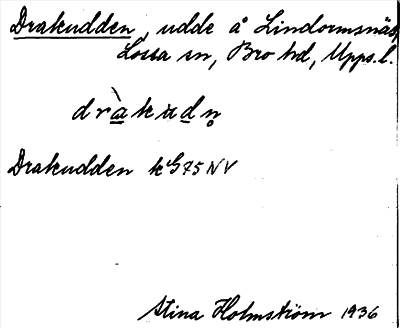 Drakudden, udde å Lindormsnäs,
Lossa sn, Bro hd, Upps. l.
dràkùdn̥
Drakudden k G75NV
Stina Holmström 1936